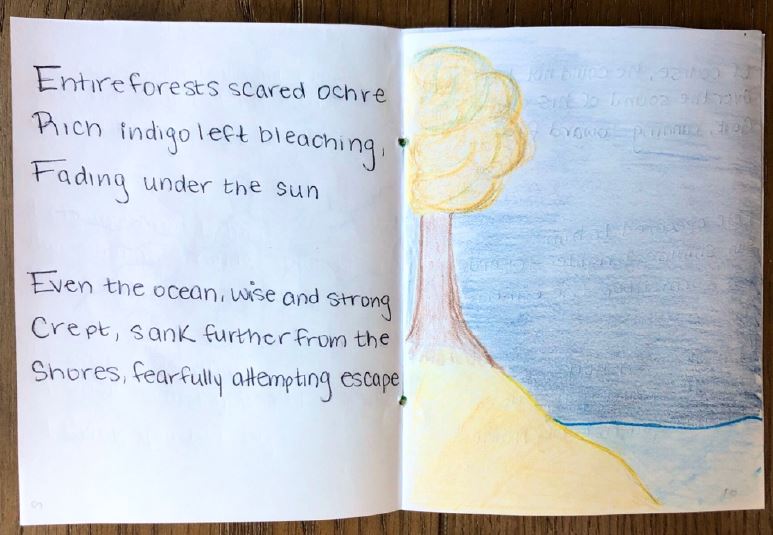 Entire forests scared ochre
Rich indigo left bleaching,
Fading under the sun
Even the ocean, wise and strong
Crept, sank further from the
Shores, fearfully attempting escape